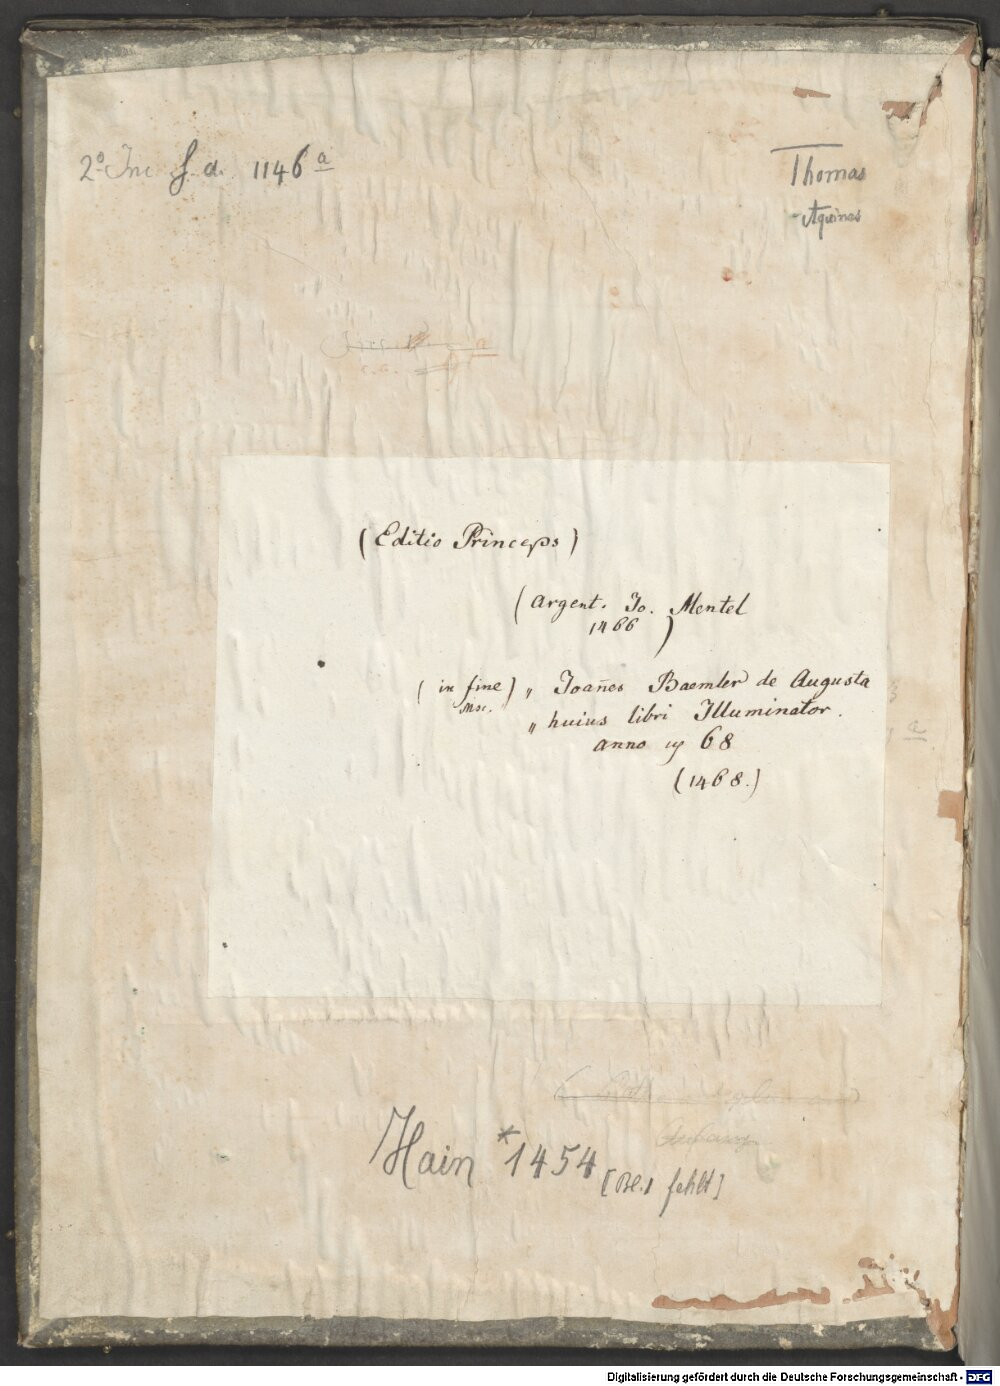 2° Inc. s. a. 1146 a
Thomas
Aquinas
(Editio Princeps)
(argent. Jo. Mentel
1466)
(in fine) „ Joan̄es Baemler de Augusta
Msc.
„ huius libri Illuminator.
anno ɥ 68
(1468.)
Hain *1454 [Bl. 1 fehlt]
Digitalisierung gefördert durch die Deutsche Forschungsgemeinschaft - DFG